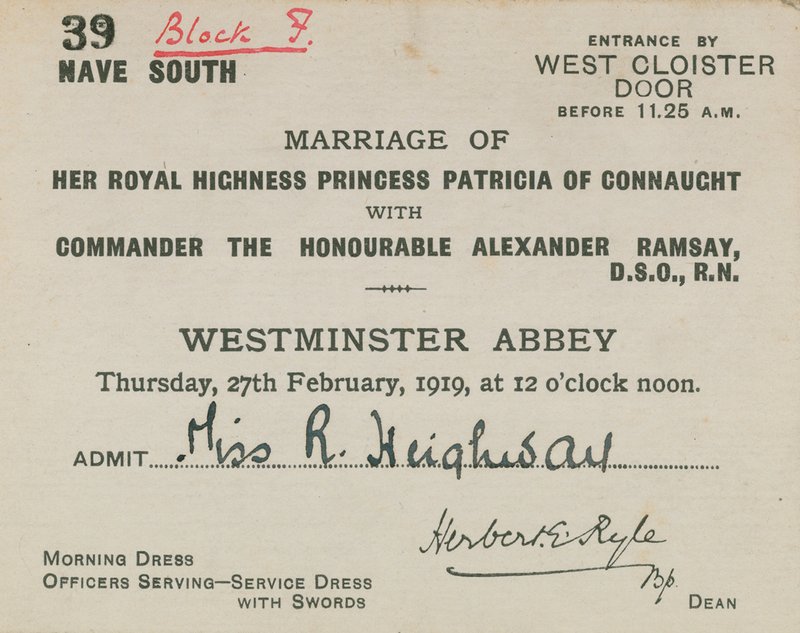 39 Block F.
NAVE SOUTH
ENTRANCE BY
WEST CLOISTER
DOOR
BEFORE 11.25 A.M.
MARRIAGE OF
HER ROYAL HIGHNESS PRINCESS PATRICIA OF CONNAUGHT
WITH
COMMANDER THE HONOURABLE ALEXANDER RAMSAY,
D.S.O., R.N.
WESTMINSTER ABBEY
Thursday, 27th February, 1919, at 12 o'clock noon.
ADMIT Miss R. Heighway
Herbert E. Ryle
Bp.
DEAN
MORNING DRESS
OFFICERS SERVING—SERVICE DRESS
WITH SWORDS